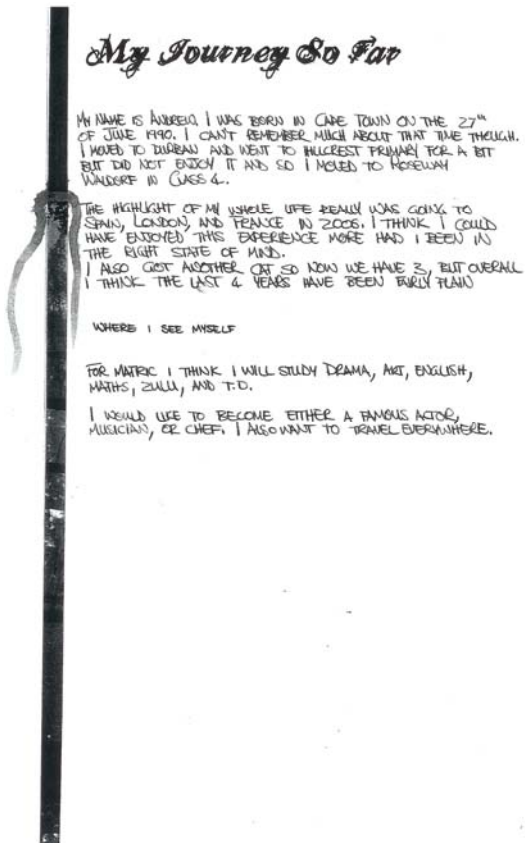 My Journey So Far
MY NAME IS ANDREW. I WAS BORN IN CAPE TOWN ON THE 27TH
OF JUNE 1990. I CAN'T REMEMBER MUCH ABOUT THAT TIME THOUGH.
I MOVED TO DURBAN AND WENT TO HILLCREST PRIMARY FOR A BIT
BUT DID NOT ENJOY IT AND SO I MOVED TO ROSEWAY
WALDORF IN CLASS 4.
THE HIGHLIGHT OF MY WHOLE LIFE REALLY WAS GOING TO
SPAIN, LONDON, AND FRANCE IN 2006. I THINK I COULD
HAVE ENJOYED THIS EXPERIENCE MORE HAD I BEEN IN
THE RIGHT STATE OF MIND.
I ALSO GOT ANOTHER CAT SO NOW WE HAVE 3, BUT OVERALL
I THINK THE LAST 4 YEARS HAVE BEEN FAIRLY PLAIN
WHERE I SEE MYSELF
FOR MATRIC I THINK I WILL STUDY DRAMA, ART, ENGLISH,
MATHS, ZULU, AND T.D.
I WOULD LIKE TO BECOME EITHER A FAMOUS ACTOR,
MUSICIAN, OR CHEF. I ALSO WANT TO TRAVEL EVERYWHERE.